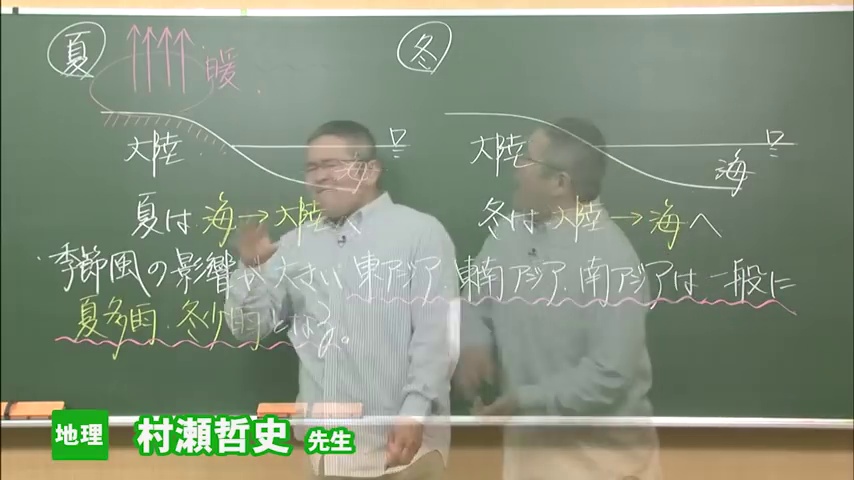 夏
冬
暖
大陸
海
大陸
海
夏は 海→大陸へ
冬は 大陸→海へ
季節風の影響が大きい東アジア、東南アジア、南アジアは一般に
夏多雨、冬少雨となる。
地理 村瀬哲史 先生